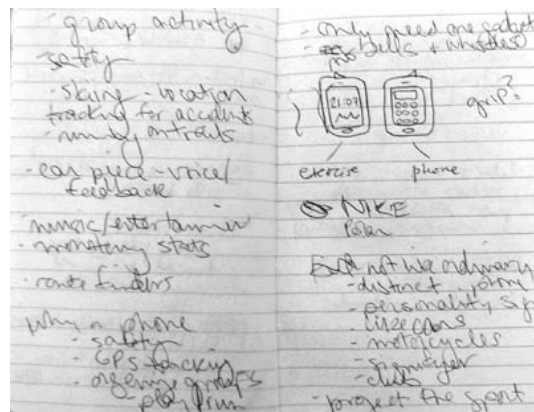 - group activity
- safety
- skiing - location
tracking for accidents
- running on trails
- ear piece - voice/
feedback
- music/entertainment
- monitoring stats
- route finders
why a phone
- safety
- GPS tracking
- organize groups
- plan run
- only need one gadget
- no bells + whistles
21:07
grip?
exercise
phone
NIKE
Polar
not like ordinary
- distinct
- personality
- like
- motorcycles
- signifier
- club
- project the sport